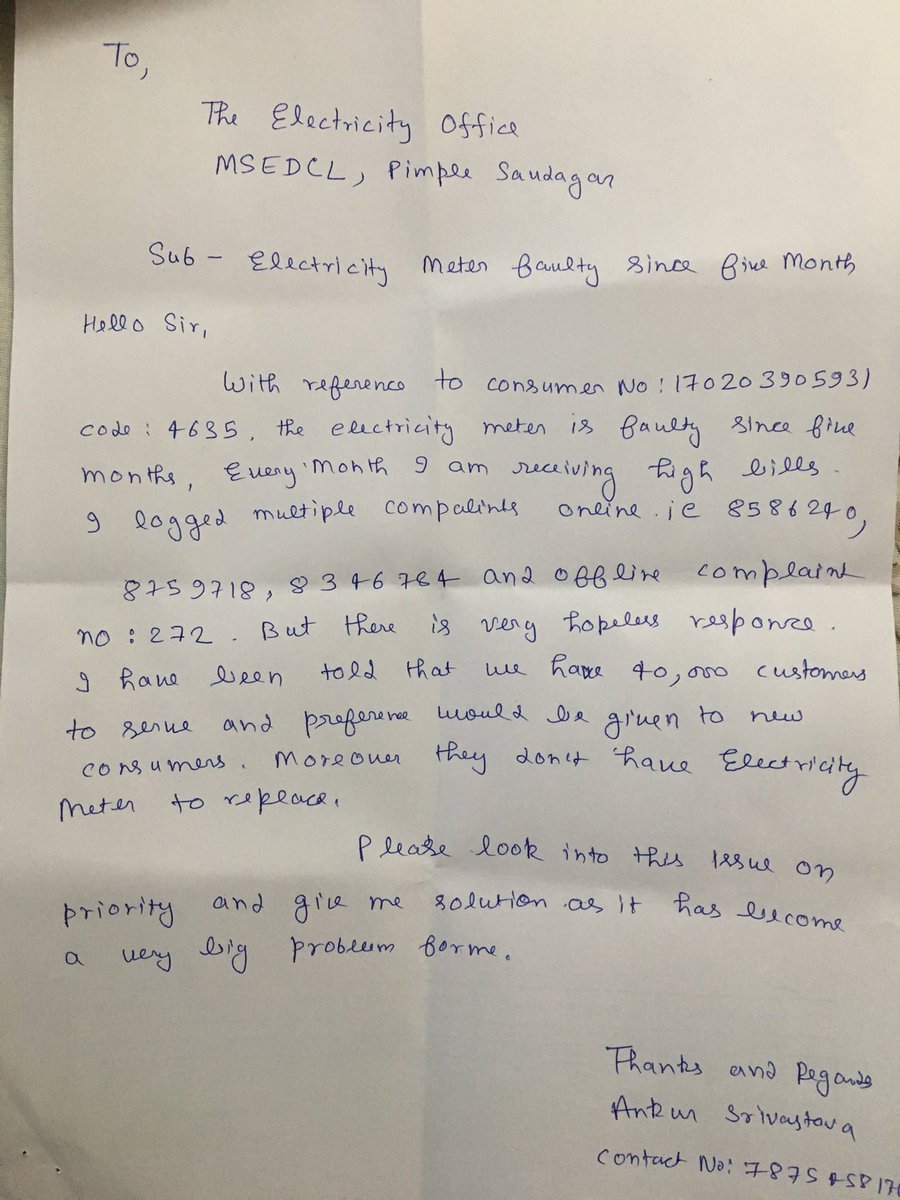 To,
The Electricity Office
MSEDCL, Pimple Saudagar
Sub - Electricity Meter faulty since five Month
Hello Sir,
With reference to consumer No: 170203905931
code: 4635, the electricity meter is faulty since five
months, Every Month I am receiving high bills.
I logged multiple compalints online. ie 8586240,
8759718, 8346784 and offline complaint
no: 272. But there is very hopeless response.
I have been told that we have 40,000 customers
to serve and preference would be given to new
consumers. Moreover they don't have Electricity
Meter to replace.
Please look into this issue on
priority and give me solution as it has become
a very big problem for me.
Thanks and Regards
Ankur Srivastava
Contact No: